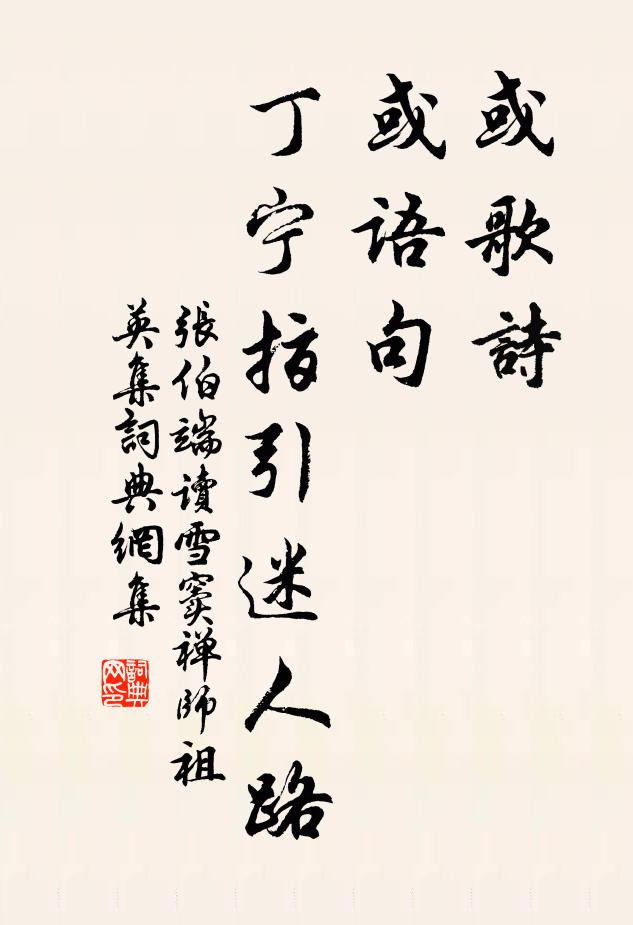 或歌詩
或語句
丁宁指引迷人路
張伯端讀雪竇禅師祖
英集詞典網集
詞典网印